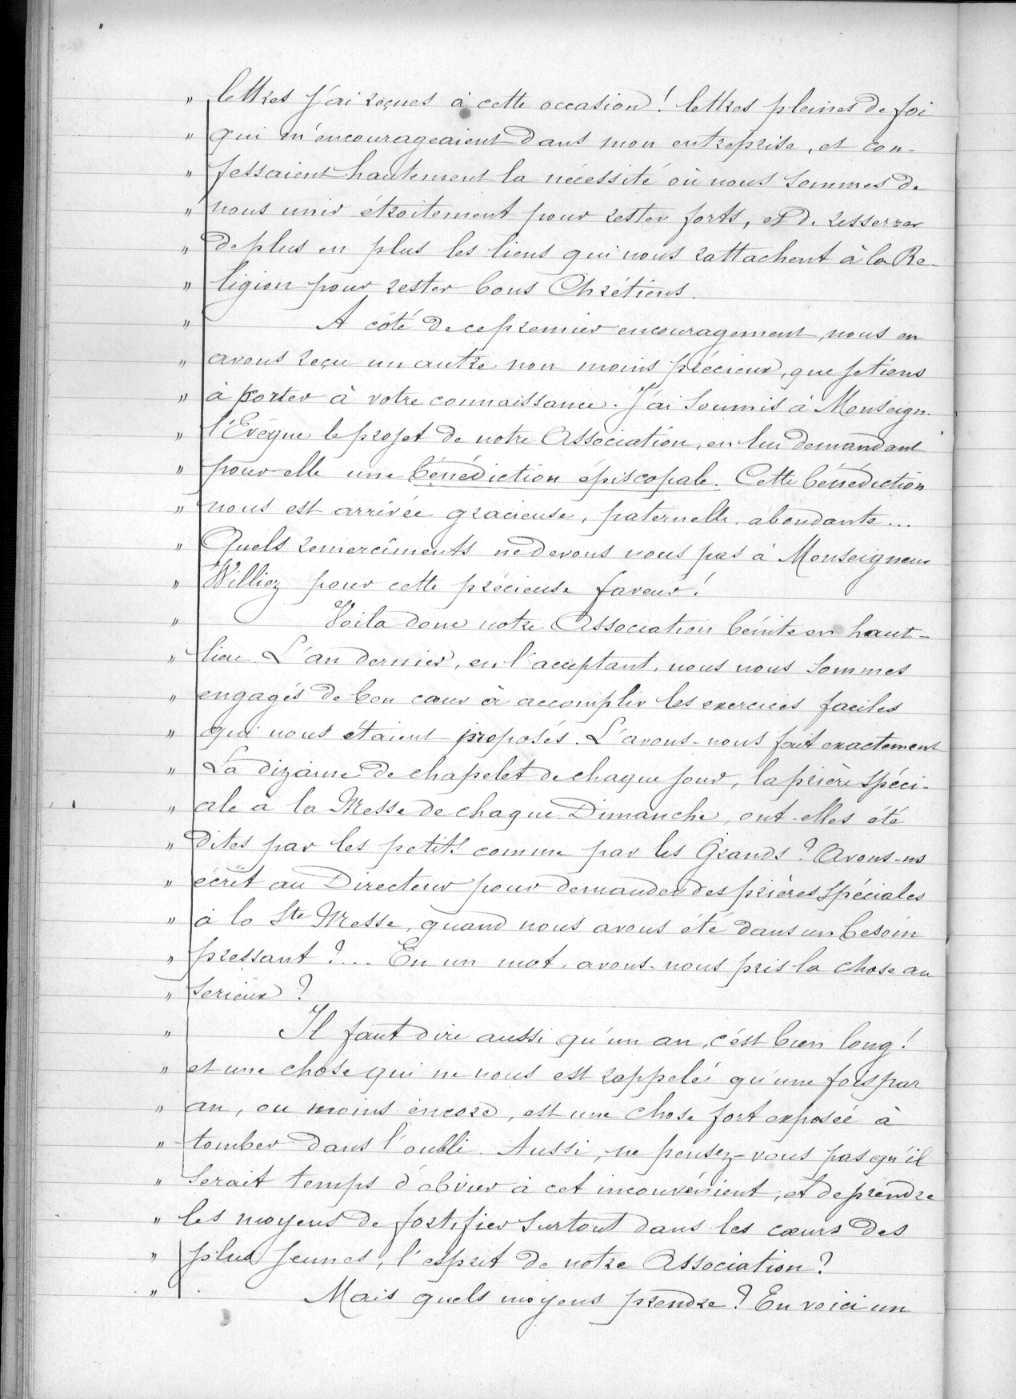 " lettres j'ai reçues à cette occasion ! lettres pleines de foi
" qui m'encourageaient dans mon entreprise, et con-
" fessaient hautement la nécessité où nous sommes de
" nous unir étroitement pour rester forts, et de resserrer
" de plus en plus les liens qui nous rattachent à la Re-
" ligion pour rester bons Chrétiens.
" A côté de ce premier encouragement, nous en
" avons reçu un autre non moins précieux, que je tiens
" à porter à votre connaissance. J'ai soumis à Monseign.
" l'Evêque le projet de notre Association, en lui demandant
" pour elle une bénédiction épiscopale. Cette bénédiction
" nous est arrivée gracieuse, paternelle, abondante...
" Quels remercîments ne devons nous pas à Monseigneur
" Williez pour cette précieuse faveur !
" Voila donc notre Association bénite en haut-
" lieu. L'an dernier, en l'acceptant, nous nous sommes
" engagés de bon cœur à accomplir les exercices faciles
" qui nous étaient proposés. L'avons-nous fait exactement
" La dizaine de chapelet de chaque jour, la prière spéci-
" ale à la Messe de chaque Dimanche, ont-elles été
" dites par les petits comme par les Grands ? Avons-ns
" écrit au Directeur pour demander des prières spéciales
" à la Ste Messe, quand nous avons été dans un besoin
" pressant ?... En un mot, avons-nous pris la chose au
" serieux ?
" Il faut dire aussi qu'un an, c'est bien long !
" et une chose qui ne nous est rappelée qu'une fois par
" an, ou moins encore, est une chose fort exposée à
" tomber dans l'oubli. Aussi, ne pensez-vous pas qu'il
" serait temps d'obvier à cet inconvénient, et de prendre
" les moyens de fortifier surtout dans les cœurs des
" plus jeunes, l'esprit de notre Association ?
" Mais quels moyens prendre ? En voici un